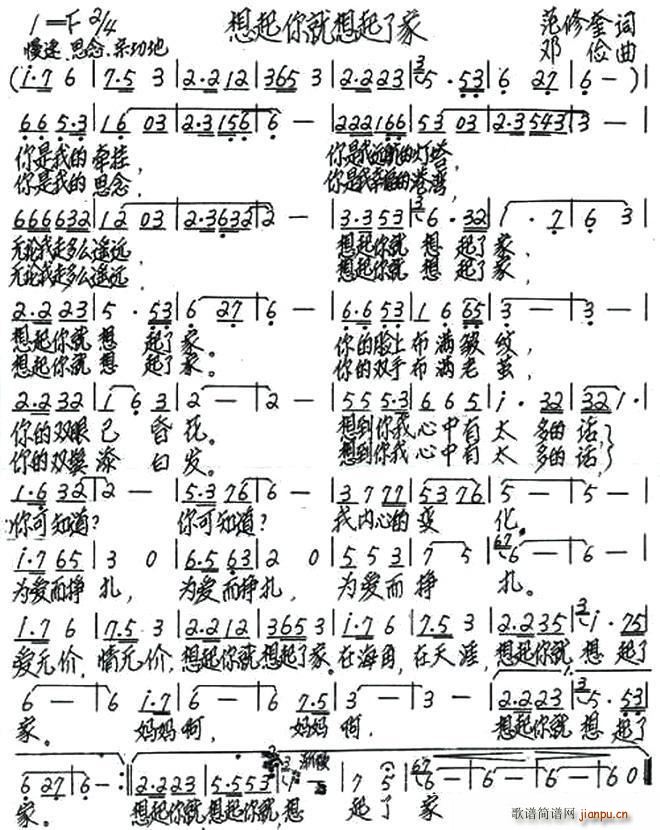 1=F 2/4 想起你就想起了家 范修奎 词
慢速、思念、亲切地 邓俭 曲
( i·7 6 | 7·5 3 | 2·2 1 2 | 3 6 5 3 | 2·2 2 3 | 5 · 5 3 | 6 2 7 | 6 - ) |
6 6 5·3 | 1 6 0 3 | 2·3 1 5 6 | 6 - | 2 2 2 1 6 6 | 5 3 0 3 | 2·3 5 4 3 | 3 - |
你是我的牵挂, 你是我远航的灯塔,
你是我的思念, 你是我幸福的港湾,
6 6 6 6 3 2 | 1 2 0 3 | 2·3 6 3 2 | 2 - | 3·3 5 3 | 6 · 3 2 | 1 · 7 | 6 3 |
无论我走多么遥远, 想起你就想起了家,
无论我走多么遥远, 想起你就想起了家,
2·2 2 3 | 5 · 5 3 | 6 2 7 | 6 - | 6·6 5 3 | 1 6 6 5 | 3 - | 3 - |
想起你就想起了家。 你的脸上布满皱纹,
想起你就想起了家。 你的双手布满老茧,
2·2 3 2 | 1 6 3 | 2 - | 2 - | 5 5 5·3 | 6 6 5 | i · 3 2 | 3 2 1 ·
你的双眼已昏花。 想到你我心中有太多的话,
你的双鬓添白发。 想到你我心中有太多的话,
1·6 3 2 | 2 - | 5·3 7 6 | 6 - | 3 7 7 7 | 5 3 7 6 | 5 - | 5 - |
你可知道? 你可知道? 我内心的变化。
i·7 6 5 | 3 0 | 6·5 6 3 | 2 0 | 5 5 3 | 7 5 | 6 - | 6 - |
为爱而挣扎, 为爱而挣扎, 为爱而挣扎。
i·7 6 | 7·5 3 | 2·2 1 2 | 3 6 5 3 | i·7 6 | 7·5 3 | 2·2 3 5 | i · 7 5 |
爱无价,情无价,想起你就想起了家。在海角,在天涯,想起你就想起了
6 - | 6 i·7 | 6 - | 6 7·5 | 3 - | 3 - | 2·2 2 3 | 5 · 5 3 |
家。 妈妈啊, 妈妈啊, 想起你就想起了
6 2 7 | 6 - :‖ 2·2 2 3 | 5·5 5 3 | i - | 7 5 | 6 - | 6 - | 6 - | 6 0 ‖
家。 想起你就想起你就,想起了家
歌谱简谱网 jianpu.cn